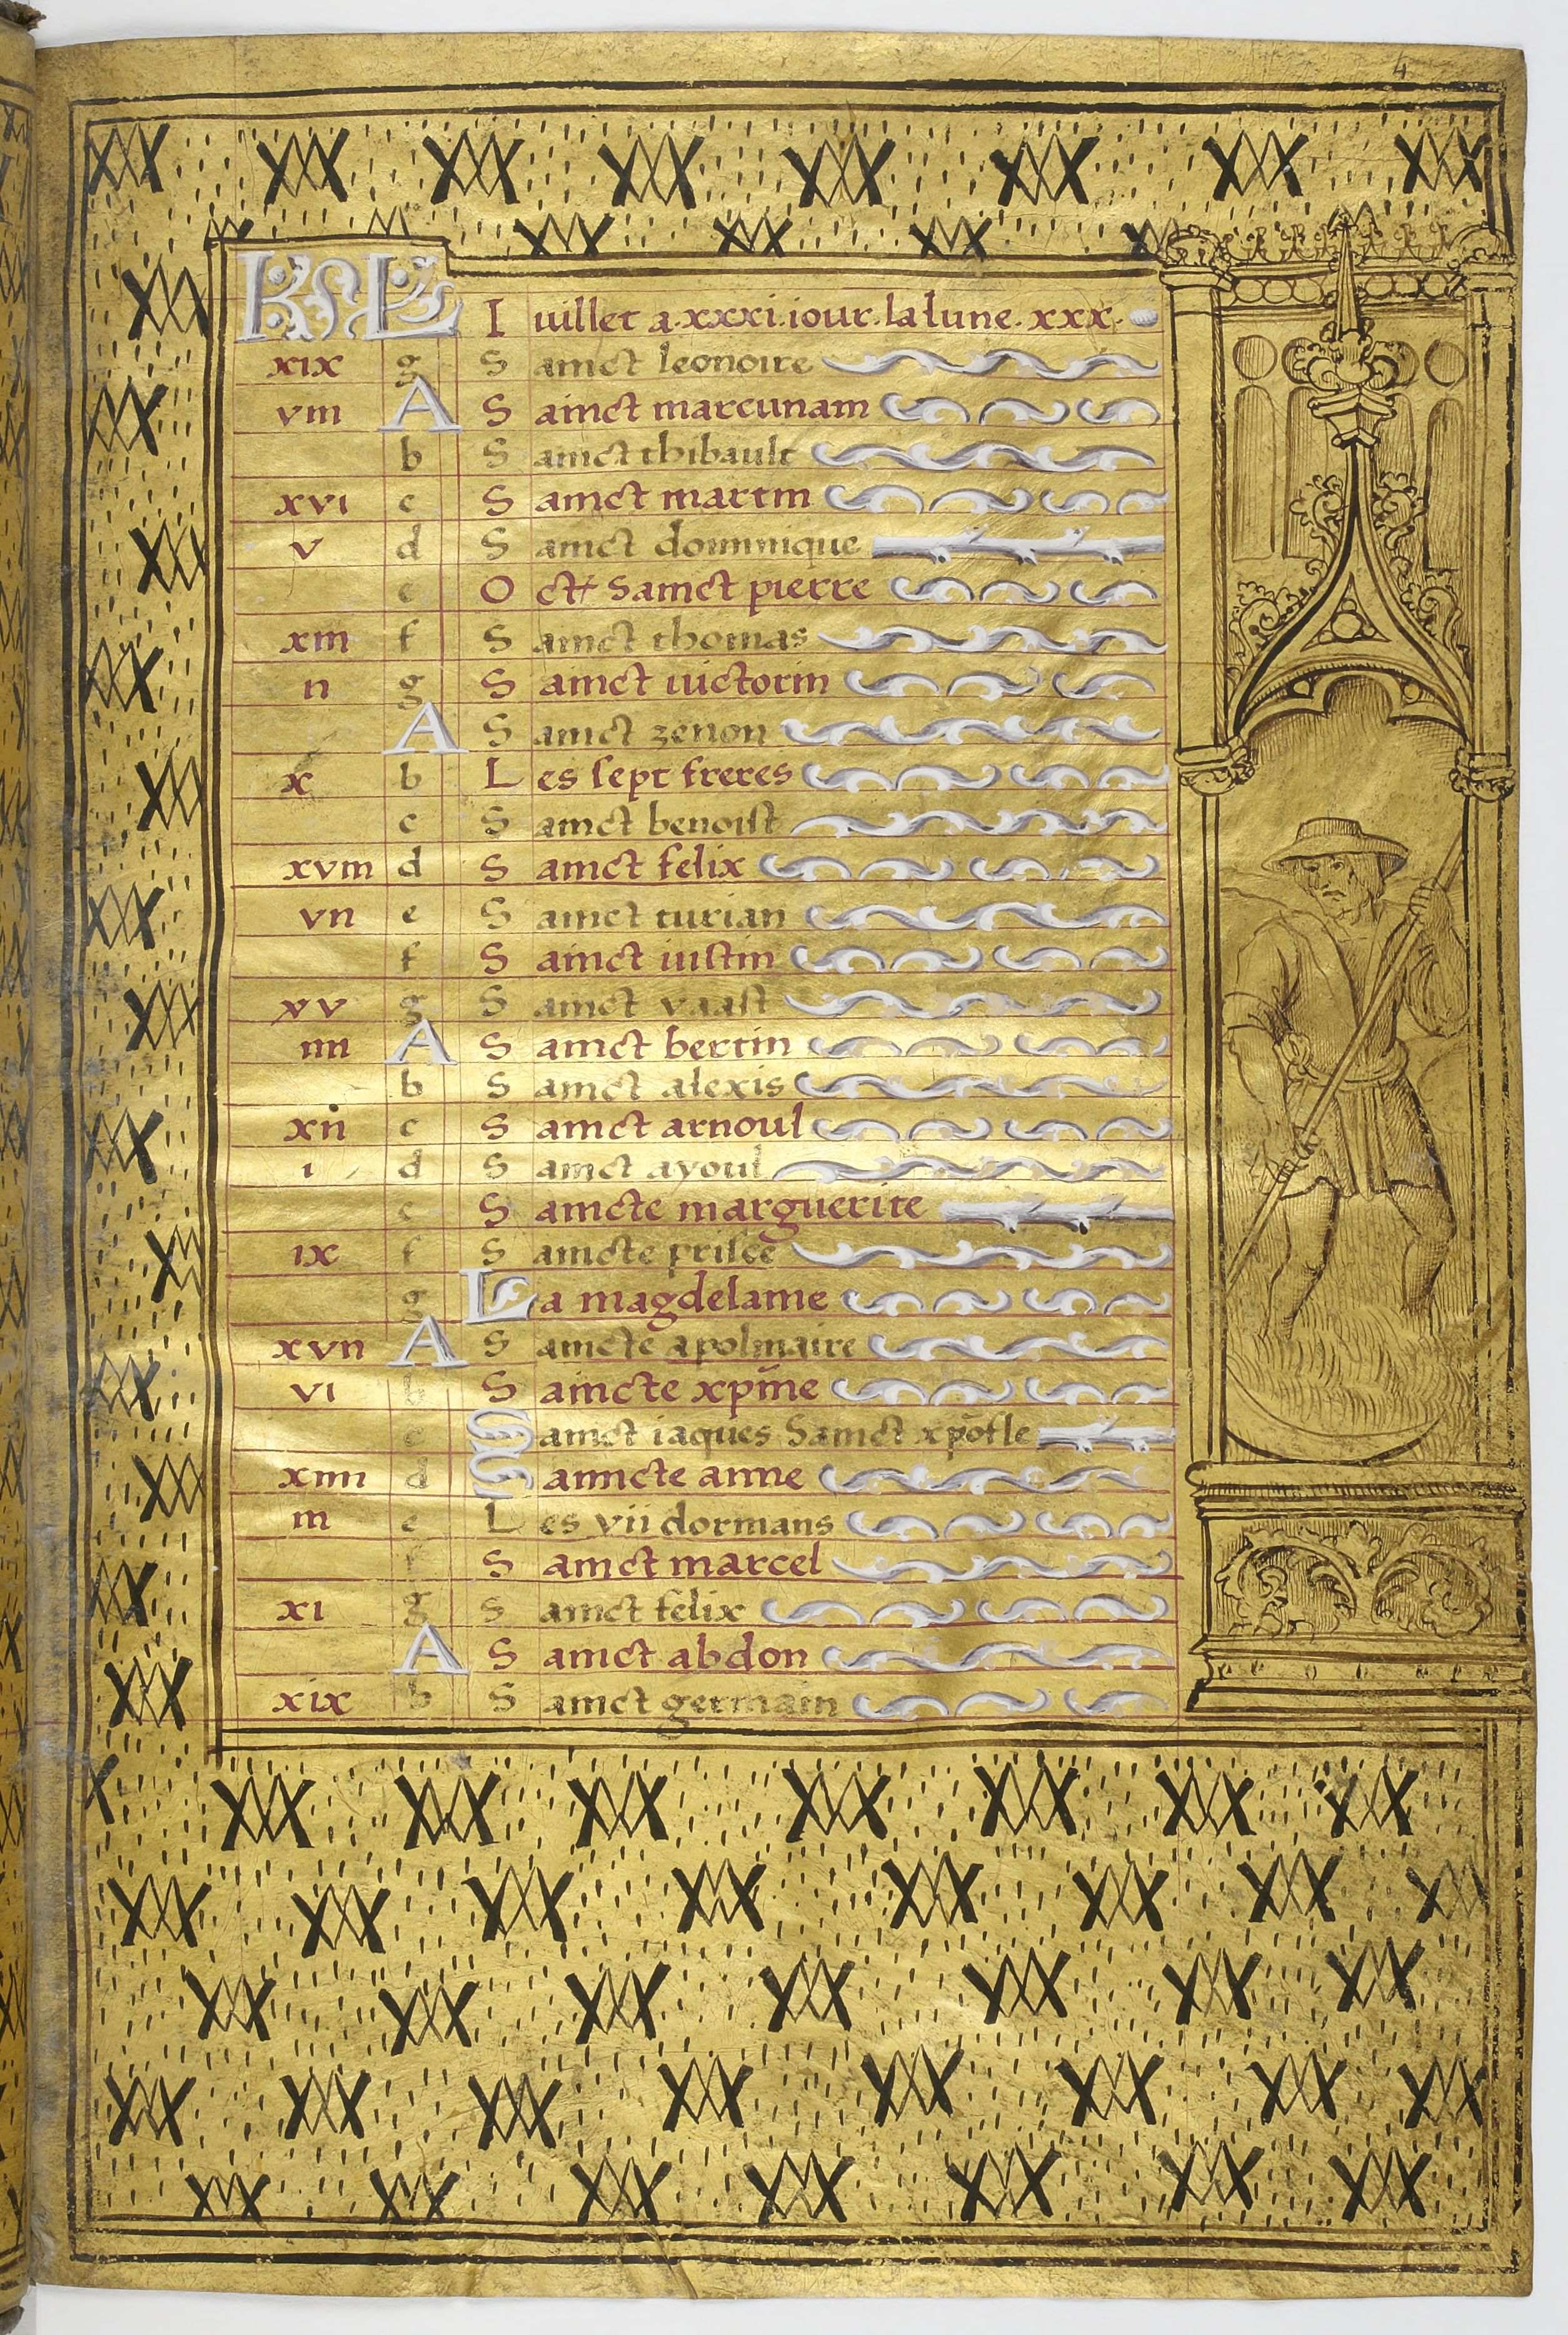 4
KL Iuillet a.xxxi.iour.la lune.xxx.
xix g Sainct leonoire
viii A Sainct marcunam
b Sainct thibault
xvi c Sainct martin
v d Sainct dominique
e Oct Sainct pierre
xiii f Sainct thomas
ii g Sainct iuictorin
A Sainct zenon
x b Les sept freres
c Sainct benoist
xviii d Sainct felix
vii e Sainct turian
f Sainct iustin
xv g Sainct vaast
iiii A Sainct bertin
b Sainct alexis
xii c Sainct arnoul
i d Sainct ayoul
e Saincte marguerite
ix f Saincte prisce
g La magdelaine
xvii A Saincte apolinaire
vi b Saincte xpine
c Sainct iaques Sainct xpofle
xiiii d Saincte anne
iii e Les vii dormans
f Sainct marcel
xi g Sainct felix
A Sainct abdon
xix b Sainct germain